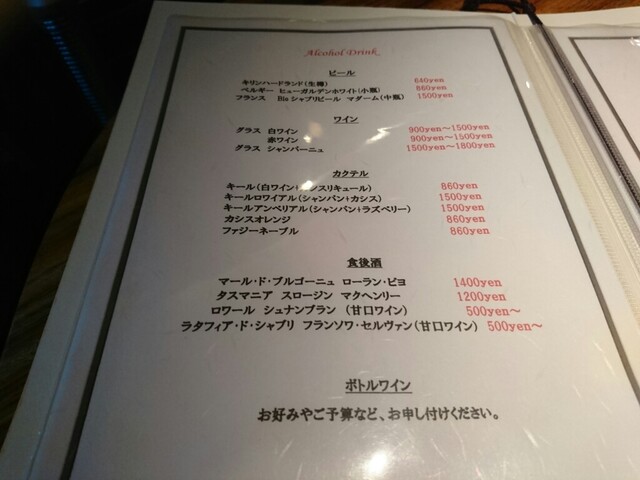 Alcohol Drink
ビール
キリンハートランド(生樽) 640yen
ベルギー ヒューガルデンホワイト(小瓶) 860yen
フランス Bioシャブリビール マダーム(中瓶) 1500yen
ワイン
グラス 白ワイン 900yen～1500yen
赤ワイン 900yen～1500yen
グラス シャンパーニュ 1500yen～1800yen
カクテル
キール(白ワイン+ シスリキュール) 860yen
キールロワイアル(シャンパン+カシス) 1500yen
キールアンペリアル(シャンパン+ラズベリー) 1500yen
カシスオレンジ 860yen
ファジーネーブル 860yen
食後酒
マール・ド・ブルゴーニュ ローラン・ビヨ 1400yen
タスマニア スロージン マクヘンリー 1200yen
ロワール シュナンブラン (甘口ワイン) 500yen～
ラタフィア・ド・シャブリ フランソワ・セルヴァン(甘口ワイン) 500yen～
ボトルワイン
お好みやご予算など、お申し付けください。